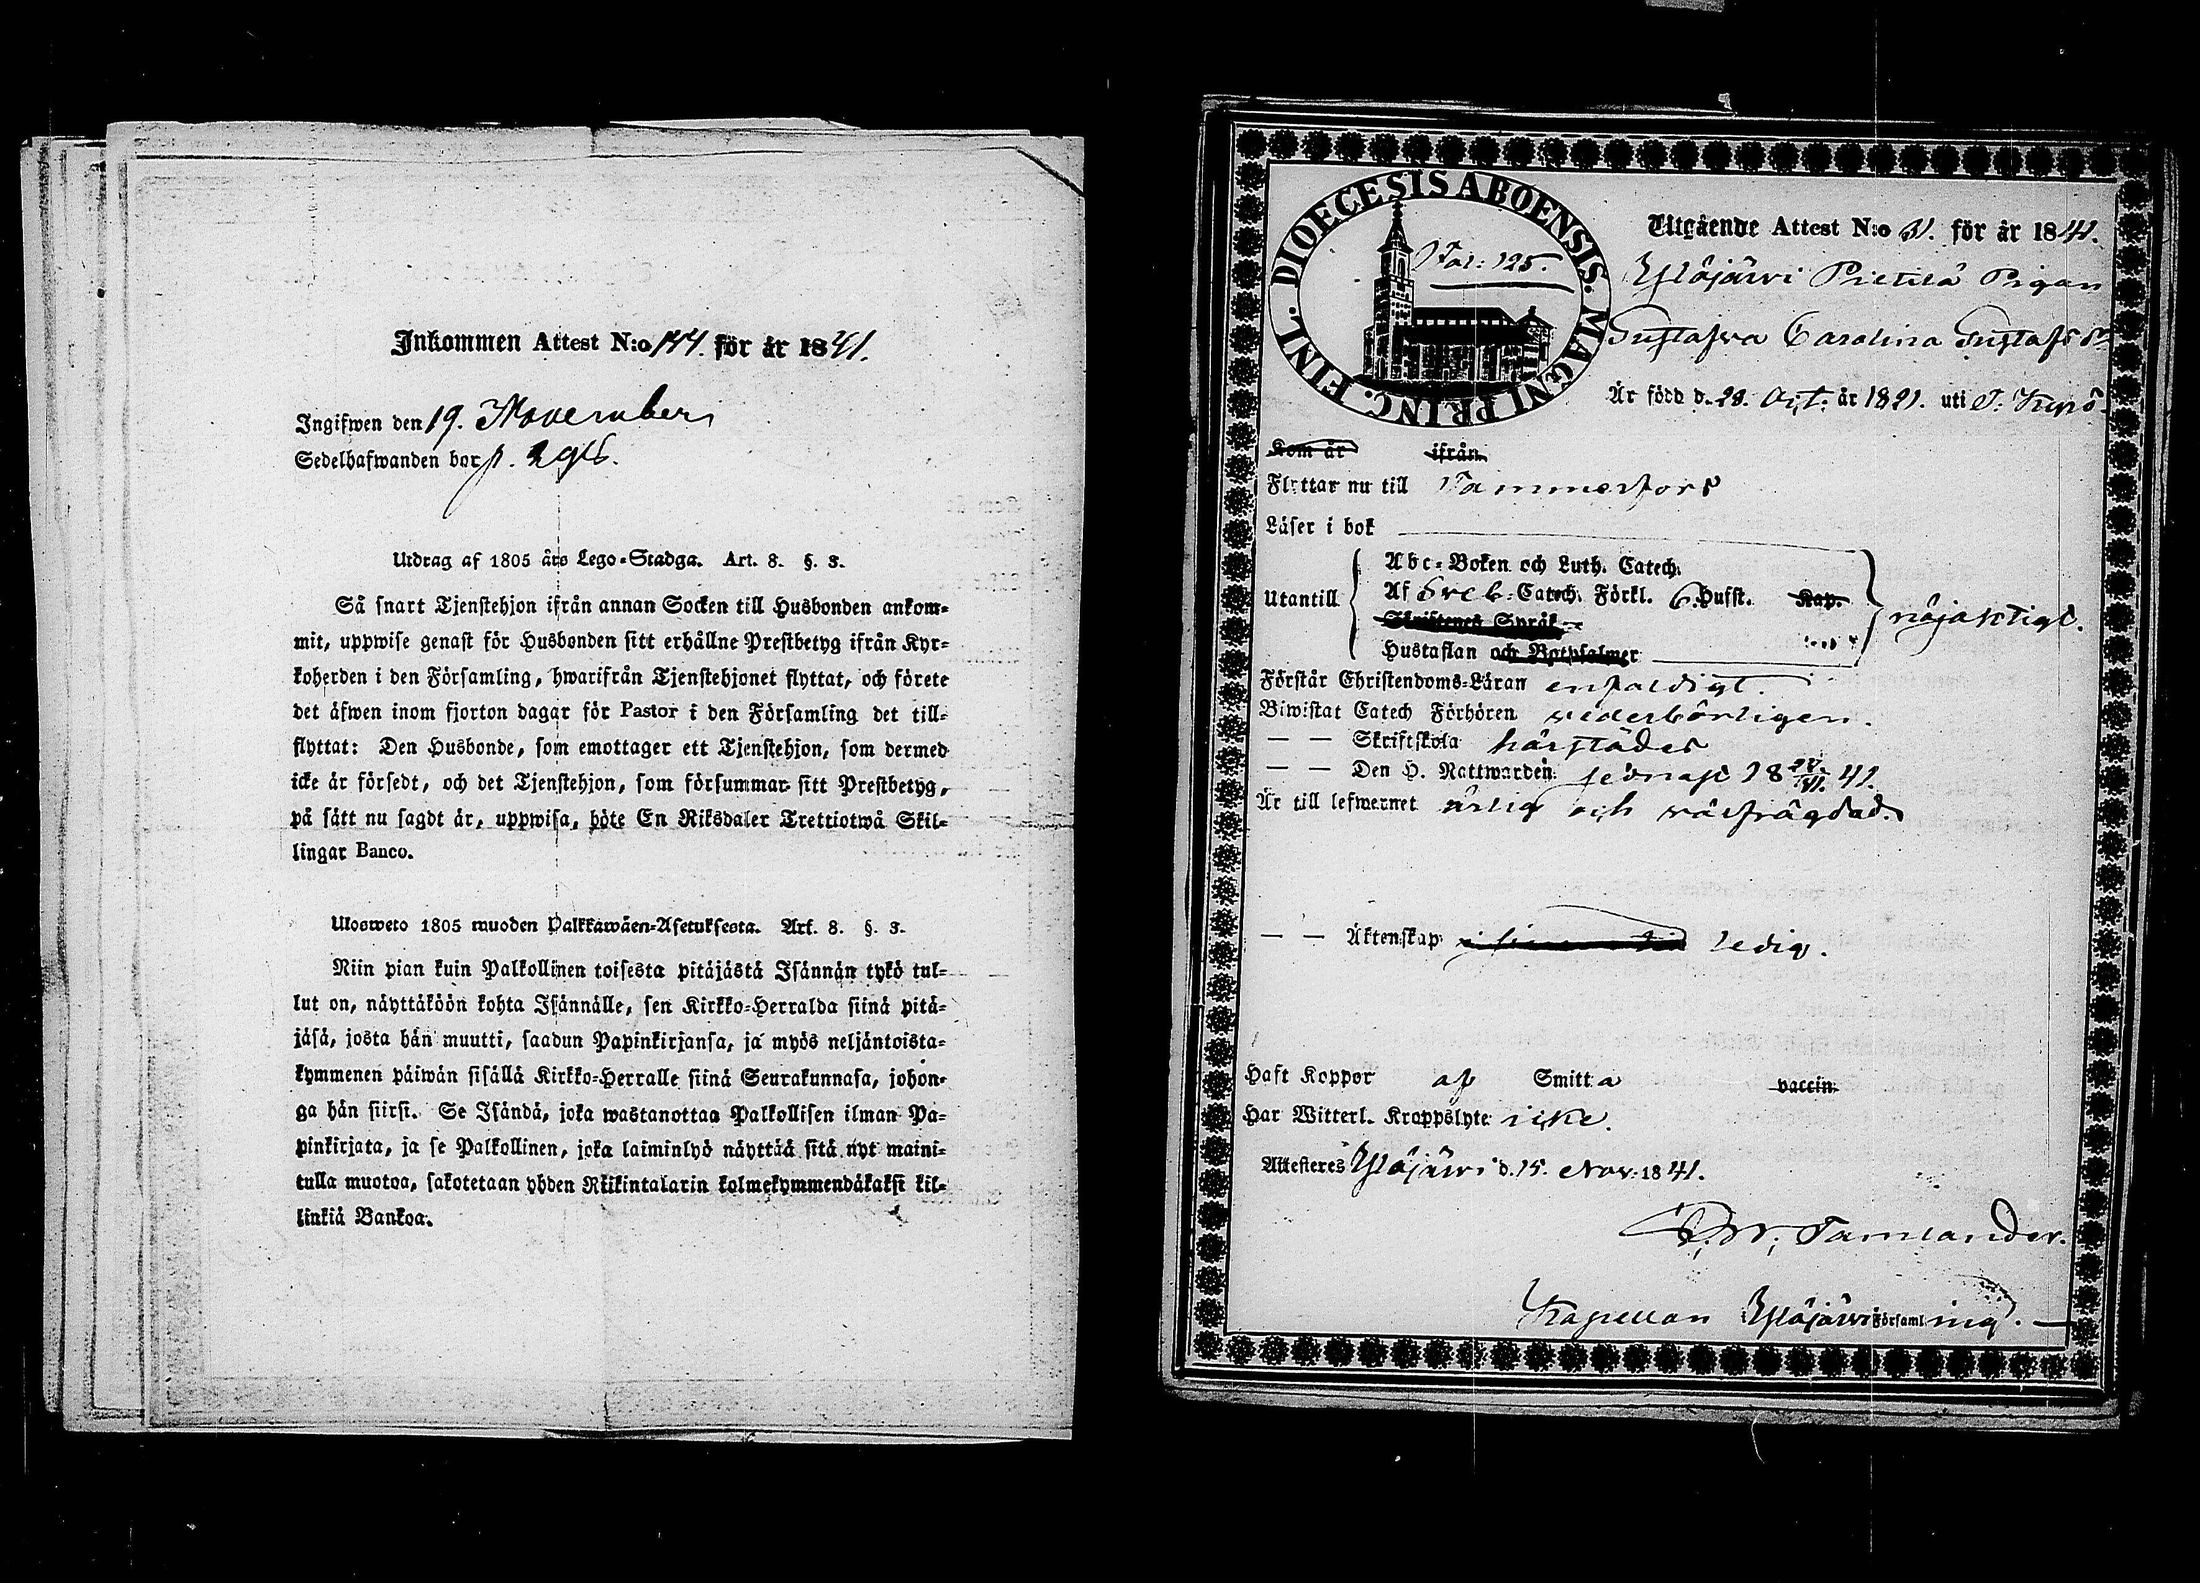 Inkommen Attest N:o 144. för år 1841.
Ingifwen den 19. November
Sedelhafwanden bor p.
Utdrag af 1805 års Lego-Stadga. Art. 8. §. 3.
Så snart Tjenstehjon ifrån annan Socken till Husbonden ankom-
mit, uppwise genast för Husbonden sitt erhållne Prestbetyg ifrån Kyr-
koherden i den Församling, hwarifrån Tjenstehjonet flyttat, och förete
det äfwen inom fjorton dagar för Pastor i den Församling det till-
flyttat: Den Husbonde, som emottager ett Tjenstehjon, som dermed
icke är försedt, och det Tjenstehjon, som försummar sitt Prestbetyg,
på sätt nu sagdt är, uppwisa, böte En Riksdaler Trettiotwå Skil-
lingar Banco.
Ulosweto 1805 muoden Palkkawäen-Asetuksesta. Art. 8. §. 3.
Niin pian kuin Palkollinen toisesta pitäjästä Isännän tykö tul-
lut on, näyttäköön kohta Isännälle, sen Kirkko-Herralda siinä pitä-
jäsä, josta hän muutti, saadun Papinkirjansa, ja myös neljäntoista-
kymmenen päiwän sisällä Kirkko-Herralle siinä Seurakunnasa, johon-
ga hän siirsi. Se Isändä, joka wastanottaa Palkollisen ilman Pa-
pinkirjata, ja se Palkollinen, joka laiminlyö näyttää sitä nyt maini-
tulla muotoa, sakotetaan yhden Riikintalarin kolmekymmendäkaksi kil-
linkiä Bankoa.
DIOECESIS ABOENSIS. MAGNI PRINC. FINL.
Fol: 125.
Utgående Attest N:o 31. för år 1841.
Ylöjärwi Pietilä Pigan
Gustafwa Carolina Gustafs Dr
Är född d. 28. Oct. år 1821. uti
Kom år ifrån
Flyttar nu till Tammerfors
Läser i bok
Utantill
Abc-Boken och Luth. Catech.
Af Sveb. Catech. Förkl. 6. Husst. Kap.
Skriftenes Språk
Hustaflan och Botpsalmer
nöjaktigt.
Förstår Christendoms-Läran enfaldigt.
Biwistat Catech Förhören wederbörligen.
— — Skriftskola härstädes
— — Den H. Nattwarden senast 18 27/VI. 41.
Är till lefwernet ärlig och wälfrägdad.
— — Äktenskap ledig.
Haft Koppor af Smitta vaccin.
Har Witterl. Kroppslyte icke.
Attesteres Ylöjärwi d. 15. Nov. 1841.
Tamlander.
Kapellan Ylöjärwi Församling.